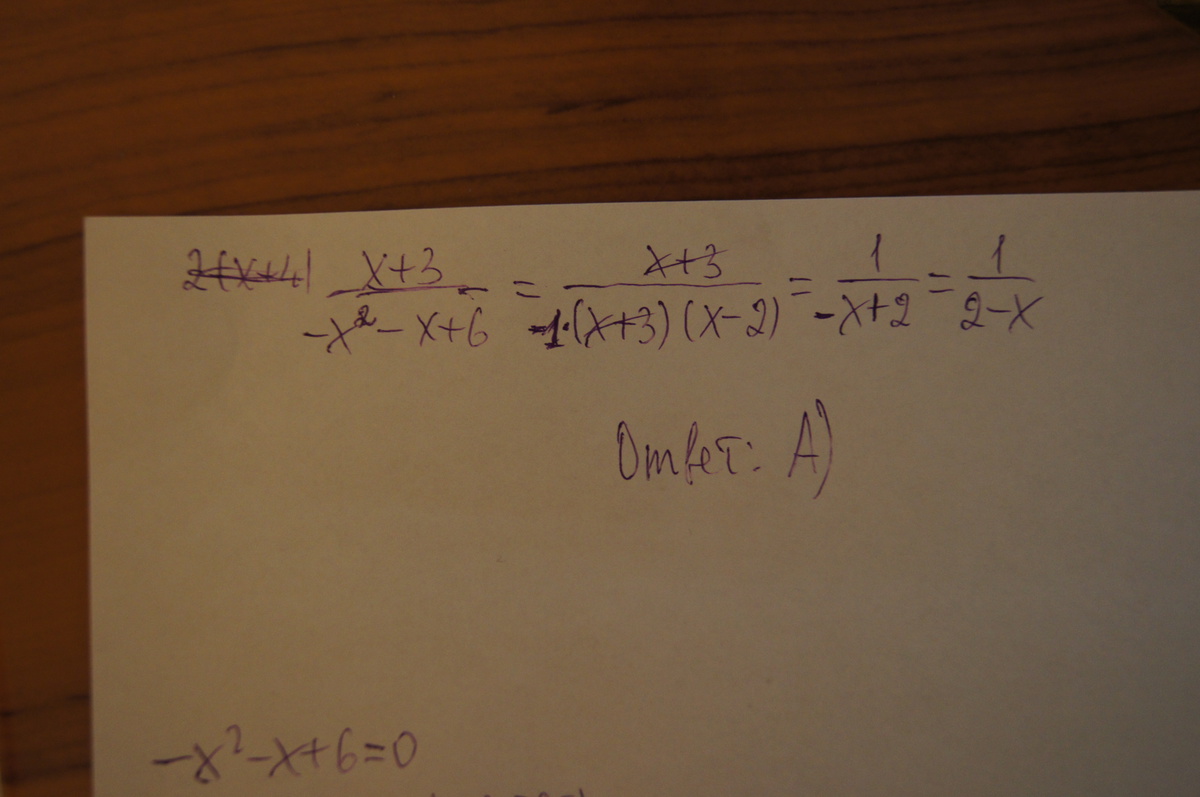 2(x+4) (x+3)/(-x²-x+6) = (x+3)/(-1·(x+3)(x-2)) = 1/(-x+2) = 1/(2-x)
Ответ: А)
-x²-x+6=0